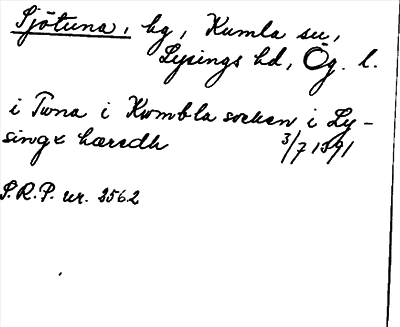 Sjötuna, hg, Kumla sn,
Lysings hd, Ög. l.
i Tuna i Kwmbla socken i Ly-
singx hæredh 3/7 1391
S.R.P. nr. 2562